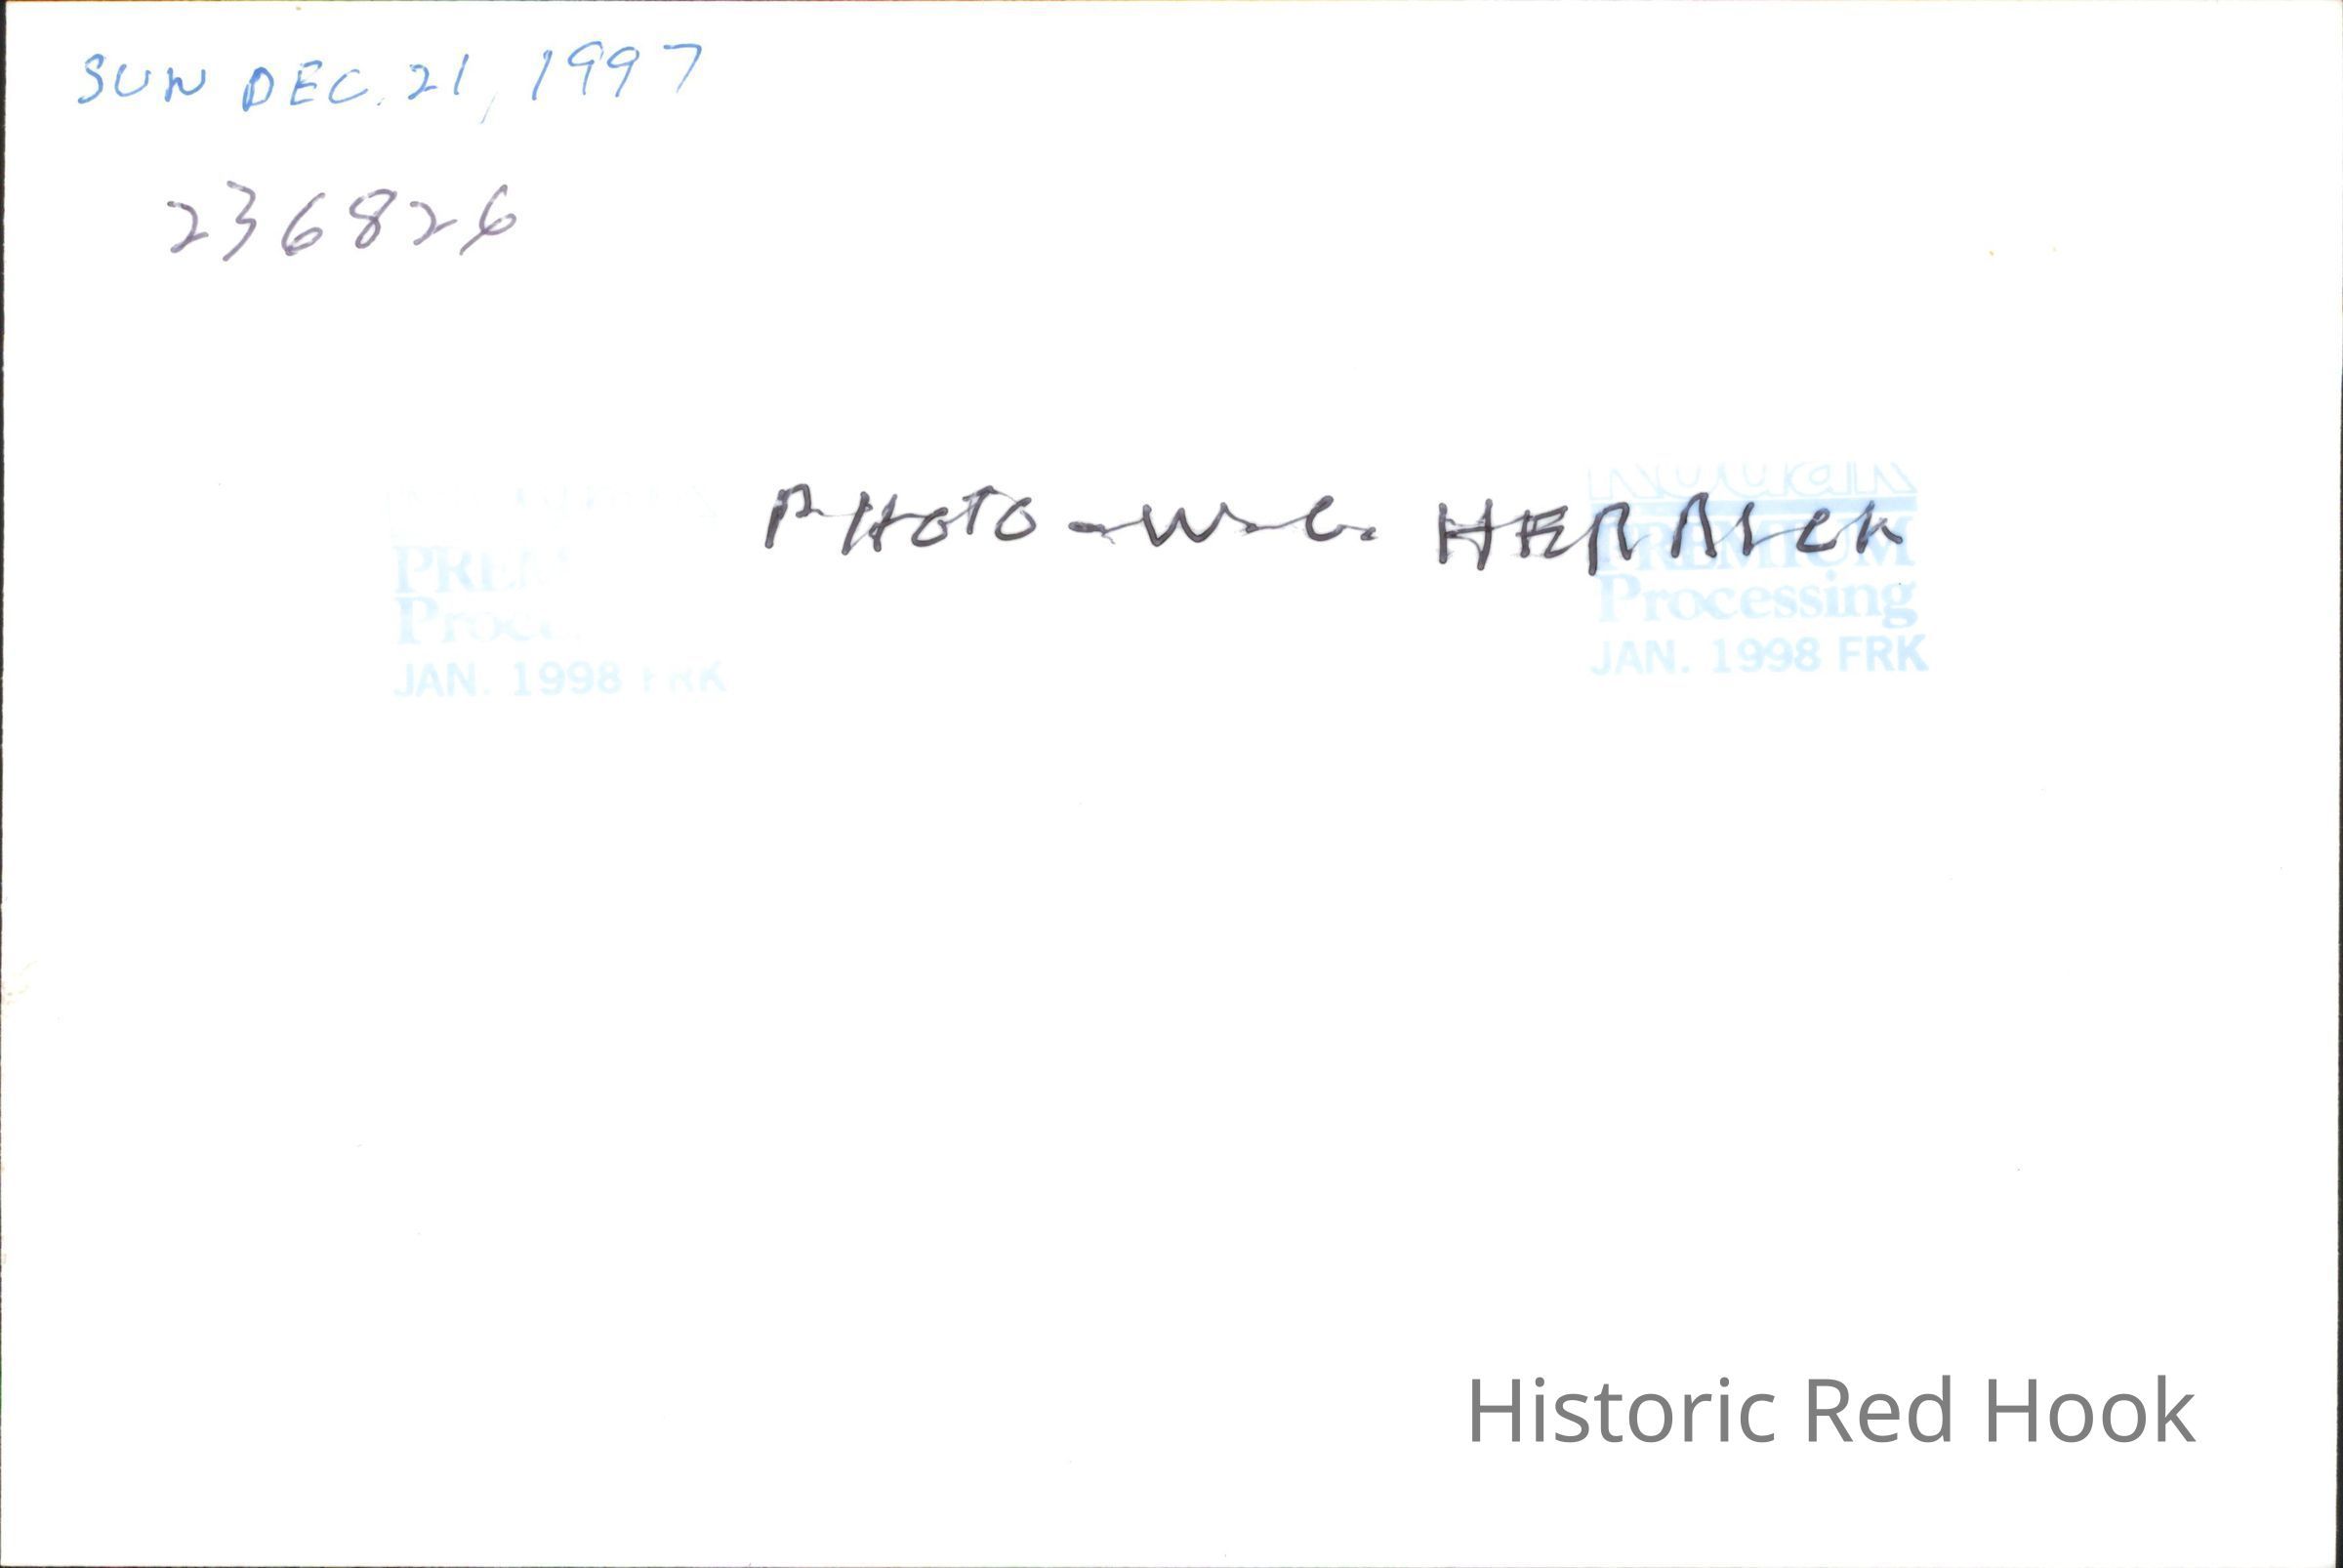 SUN DEC. 21, 1997
236826
PHOTO - W. C. HERRICK
Kodak
PREMIUM
Processing
JAN. 1998 FRK
Processing
JAN. 1998 FRK
Historic Red Hook